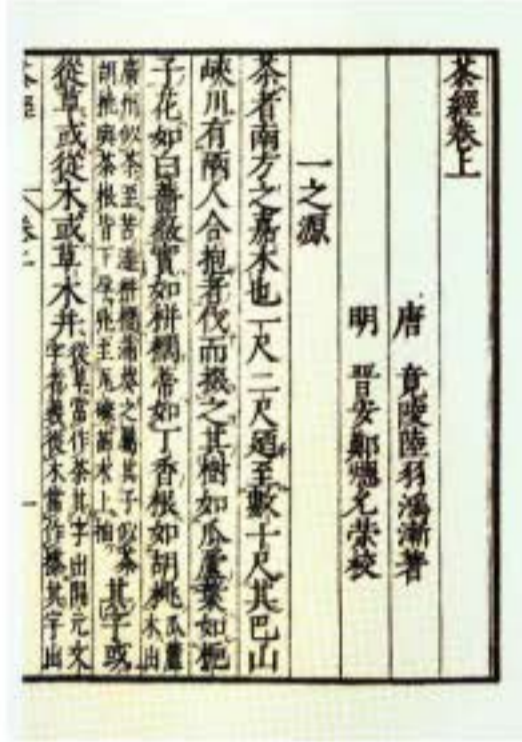 茶經卷上
唐 竟陵陸羽鴻漸著
明 晉安鄭熜允榮校
一之源
茶者南方之嘉木也一尺二尺廼至數十尺其巴山
峽川有兩人合抱者伐而掇之其樹如瓜蘆葉如梔
子花如白薔薇實如栟櫚蒂如丁香根如胡桃瓜蘆木出
廣州似茶至苦澁栟櫚蒲葵之屬其子似茶
胡桃與茶根皆下孕兆至瓦礫苗木上抽其字或
從草或從木或草木并從草當作茶其字出開元文
字音義從木當作㮈其字出